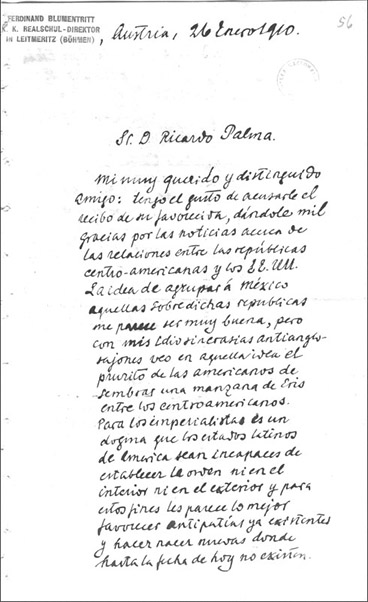 FERDINAND BLUMENTRITT
K. K. REALSCHUL-DIREKTOR
IN LEITMERITZ (BÖHMEN)
, Austria, 26 Enero 1910.
56
Sr. D Ricardo Palma.
Mi muy querido y distinguido
amigo: tengo el gusto de acusarle el
recibo de su favorecida, dándole mil
gracias por las noticias acerca de
las relaciones entre las repúblicas
centro-americanas y los EE. UU.
La idea de agrupar á México
aquellas sobredichas republicas
me parece ser muy buena, pero
con mis idiosincrasias antianglo-
sajones veo en aquella idea el
prurito de las americanos de
sembrar una manzana de Eris
entre los centroamericanos.
Para los imperialistas es un
dogma que los estados latinos
de America sean incapaces de
establecer la orden ni en el
interior ni en el exterior y para
estos fines les parece lo mejor
favorecer antipatías ya existentes
y hacer nacer nuevas donde
hasta la fecha de hoy no existen.